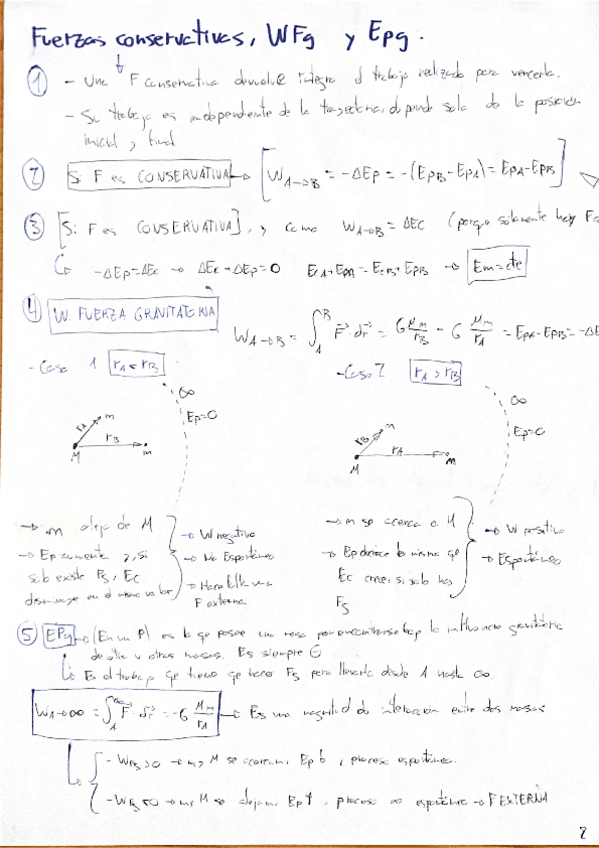 Fuerzas conservativas, WFg y Epg.
① - Una F conservativa devuelve íntegro el trabajo realizado para vencerla.
- Su trabajo es independiente de la trayectoria, depende solo de la posición
inicial y final
② Si F es CONSERVATIVA → [W A→B = -ΔEp = -(EpB-EpA) = EpA-EpB]
③ [Si F es CONSERVATIVA], y como W A→B = ΔEc (porque solamente hay Fc
-ΔEp=ΔEc → ΔEc+ΔEp=0 EcA+EpA=EcB+EpB → Em=cte
④ W. FUERZA GRAVITATORIA
W A→B = ∫_A^B F⃗ dr⃗ = G Mm/rB - G Mm/rA = EpA-EpB = -ΔE
- Caso 1 rA<rB
- Caso 2 rA>rB
∞
Ep=0
rA m
rB
M m
∞
Ep=0
rB m
rA
M m
→ m aleja de M
→ Ep aumenta y, si
solo existe Fg, Ec
disminuye en el mismo valor
→ W negativo
→ No Espontáneo
→ Hace falta una
F externa
→ m se acerca a M
→ Ep decrece lo mismo qe
Ec crece, si solo hay
Fg
→ W positivo
→ Espontáneo
⑤ EPg → (En un P) es la qe posee una masa por encontrarse bajo la influencia gravitatoria
de otra u otras masas. Es siempre ⊖
Es el trabajo qe tiene qe hacer Fg para llevarla desde A hasta ∞.
W A→∞ = ∫_A^∞ F⃗ · dr⃗ = -G Mm/rA → Es una magnitud de interacción entre dos masas
- WFg>0 → m y M se acercan, Ep ↓, proceso espontáneo.
- WFg<0 → m y M se alejan, Ep ↑, proceso no espontáneo → F EXTERNA
2